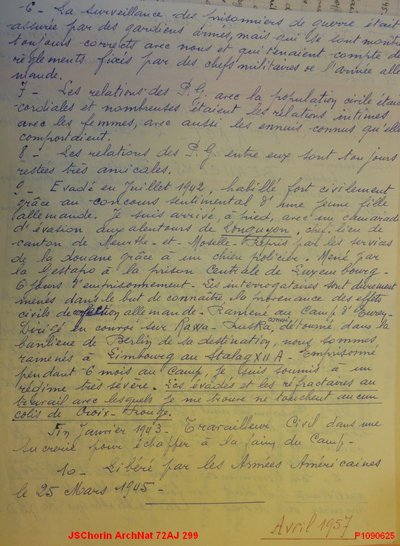 6 - La surveillance des prisonniers de guerre était
assurée par des gardiens armés, mais qui se sont montrés
toujours corrects avec nous et qui tenaient compte des
règlements fixés par des chefs militaires de l'armée alle
mande.
7 - Les relations des P.G. avec la population civile étaient
cordiales et nombreuses étaient les relations intimes
avec les femmes, avec aussi les ennuis connus qu'elles
comportaient.
8 - Les relations des P.G. entre eux sont toujours
restées très amicales.
9 - Evadé en Juillet 1942, habillé fort civilement
grâce au concours sentimental d'une jeune fille
allemande. Je suis arrivé à pied, avec un camarade
d'évasion aux alentours de Longuyon, chef-lieu de
canton de Meurthe-et-Moselle - Repris par les services
de la douane grâce à un chien policier. Mené par
la Gestapo à la prison Centrale de Luxembourg -
6 jours d'emprisonnement. Les interrogatoires sont durement
menés dans le but de connaître la provenance des effets
civils de allemande - Ramené au Camp d'
Dirigé en convoi sur Rawa-Ruska, convoi détourné dans la
banlieue de Berlin de sa destination, nous sommes
ramenés à Limbourg au Stalag XII A - Emprisonné
pendant 6 mois au Camp, je suis soumis à un
régime très sévère. Les évadés et les réfractaires au
travail avec lesquels je me trouve ne touchent aucun
colis de Croix-Rouge.
Fin Janvier 1943 - Travailleur Civil dans une
sucrerie pour échapper à la faim du Camp -
10 - Libéré par les Armées Américaines
le 25 Mars 1945 -
Avril 1957
JSChorin ArchNat 72AJ 299
P1090625